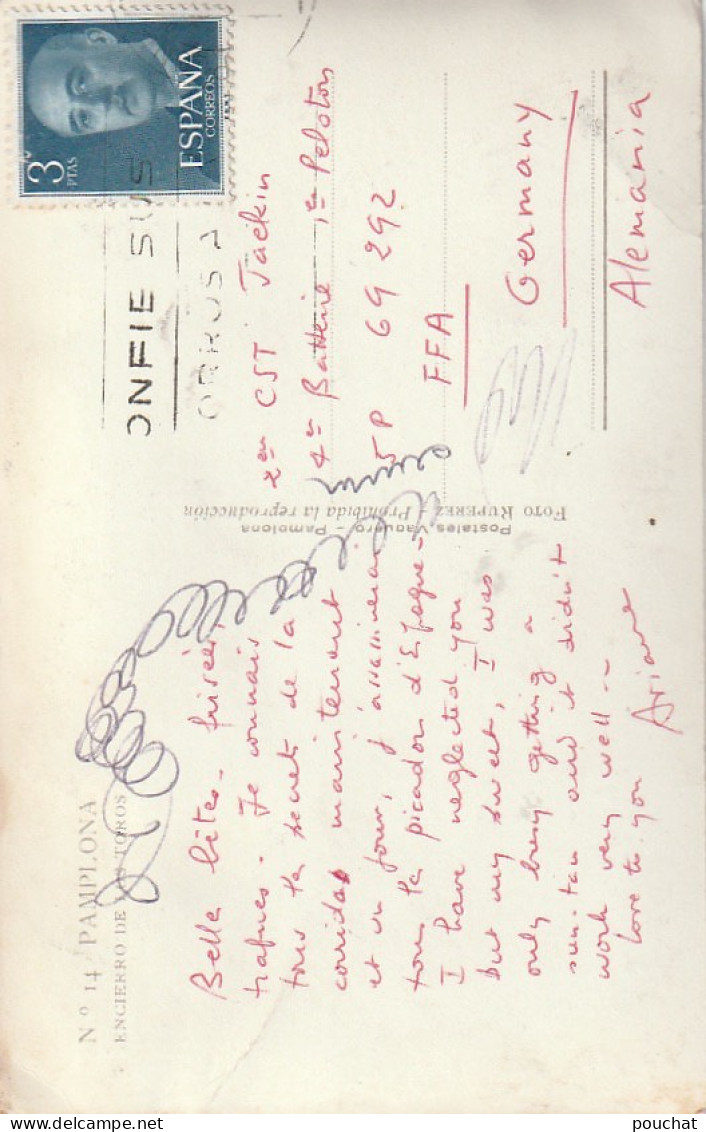 Nº 14 PAMPLONA
ENCIERRO DE TOROS
Belle bêtes.
trapues. Je connais
tous les secrets de la
corridas maintenant
et un jour, j'assassinerai
tous les picadors d'Espagne -
I have neglected you
but my sweet, I was
only busy getting a
sun-tan and it didn't
work very well -
love to you
Ariane
Postales Vaquero - Pamplona
FOTO RUPEREZ - Prohibida la reproducción
3 PTAS
ESPAÑA
CORREOS
ONFIE SUS
ORROS A
CST Jackin
4er Batterie 1er Peloton
SP 69 292
FFA
Germany
Alemania
pouchat